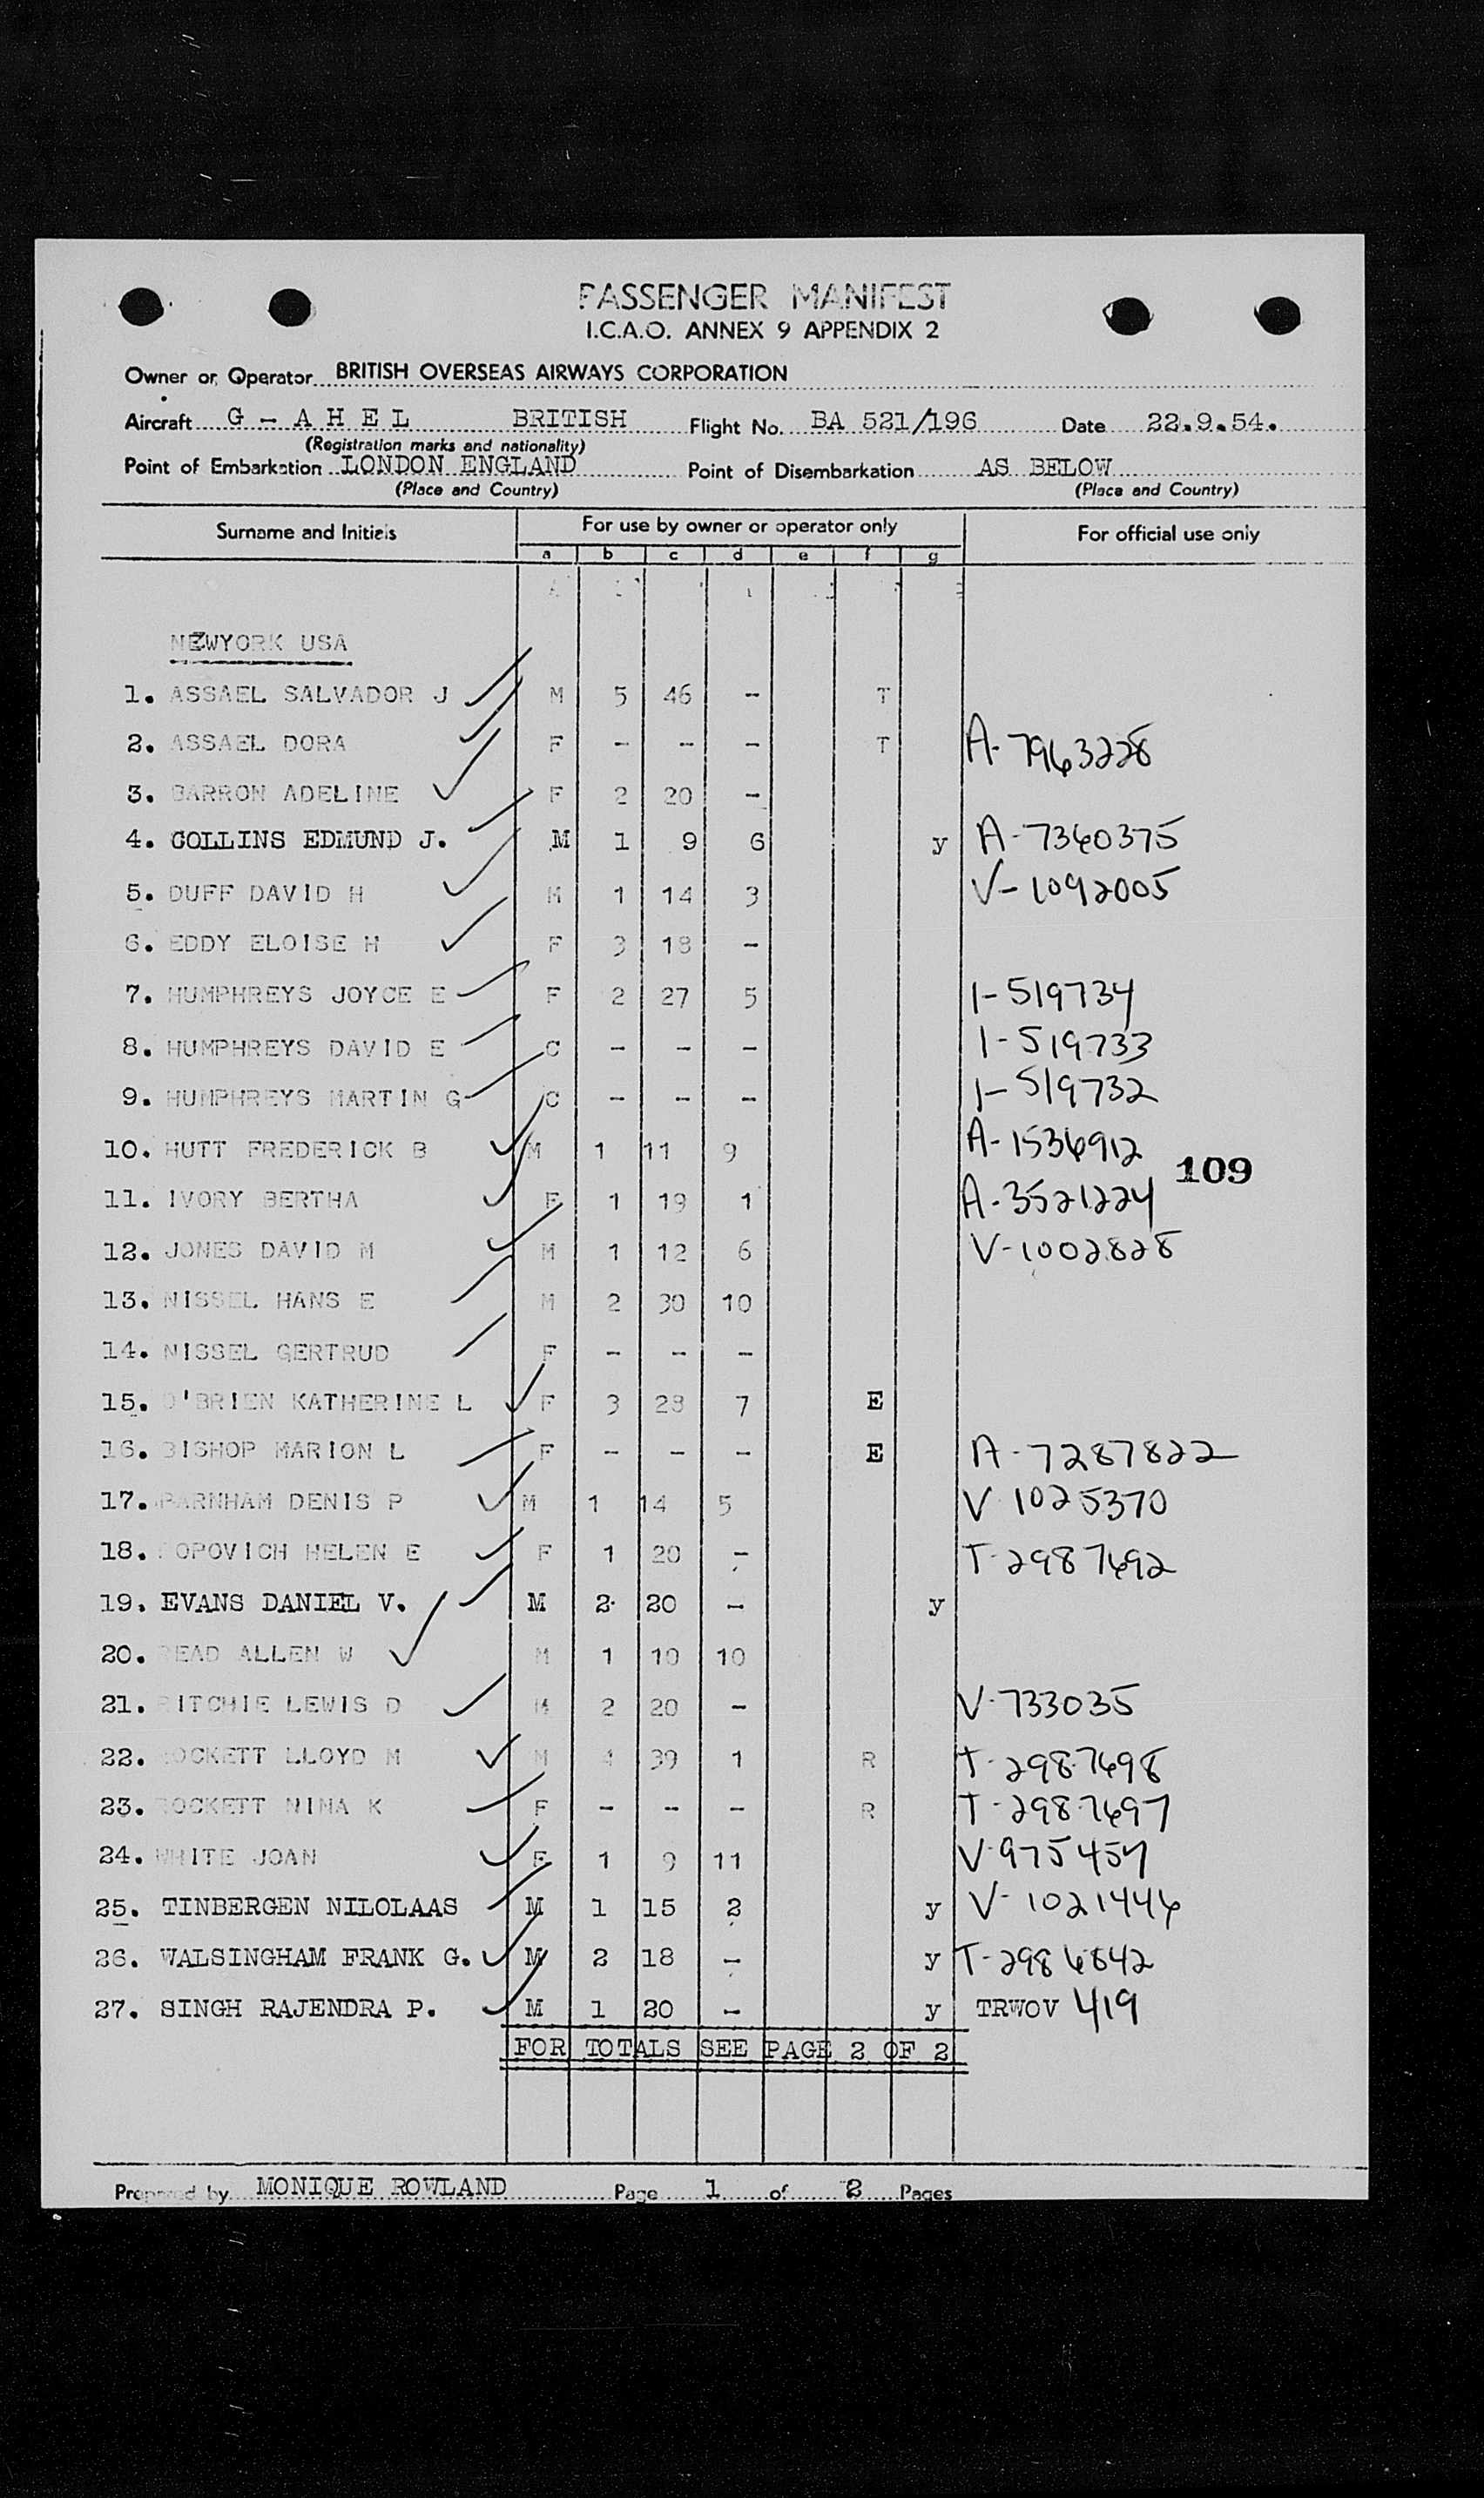 PASSENGER MANIFEST
I.C.A.O. ANNEX 9 APPENDIX 2
Owner or Operator BRITISH OVERSEAS AIRWAYS CORPORATION
Aircraft G - A H E L BRITISH Flight No. BA 521/196 Date 22.9.54.
(Registration marks and nationality)
Point of Embarkation LONDON ENGLAND Point of Disembarkation AS BELOW
(Place and Country) (Place and Country)
Surname and Initials For use by owner or operator only For official use only
a b c d e f g
NEWYORK USA
1. ASSAEL SALVADOR J M 5 46 - T
2. ASSAEL DORA F - - - T A-7963228
3. BARRON ADELINE F 2 20 -
4. COLLINS EDMUND J. M 1 9 6 y A-7360375
5. DUFF DAVID H M 1 14 3 V-1092005
6. EDDY ELOISE H F 3 18 -
7. HUMPHREYS JOYCE E F 2 27 5 1-519734
8. HUMPHREYS DAVID E C - - - 1-519733
9. HUMPHREYS MARTIN G C - - - 1-519732
10. HUTT FREDERICK B M 1 11 9 A-1536912
109
11. IVORY BERTHA F 1 19 1 A-3521224
12. JONES DAVID M M 1 12 6 V-1002828
13. NISSEL HANS E M 2 30 10
14. NISSEL GERTRUD F - - -
15. O'BRIEN KATHERINE L F 3 28 7 E
16. BISHOP MARION L F - - - E A-7287822
17. PARNHAM DENIS P M 1 14 5 V 1025370
18. POPOVICH HELEN E F 1 20 - T-2987692
19. EVANS DANIEL V. M 2 20 - y
20. READ ALLEN W M 1 10 10
21. RITCHIE LEWIS D M 2 20 - V-733035
22. ROCKETT LLOYD M M 4 39 1 R T-2987698
23. ROCKETT NINA K F - - - R T-2987697
24. WHITE JOAN F 1 9 11 V-975457
25. TINBERGEN NILOLAAS M 1 15 2 y V-1021446
26. WALSINGHAM FRANK G. M 2 18 - y T-2986842
27. SINGH RAJENDRA P. M 1 20 - y TRWOV 419
FOR TOTALS SEE PAGE 2 OF 2
Prepared by MONIQUE ROWLAND Page 1 of 2 Pages